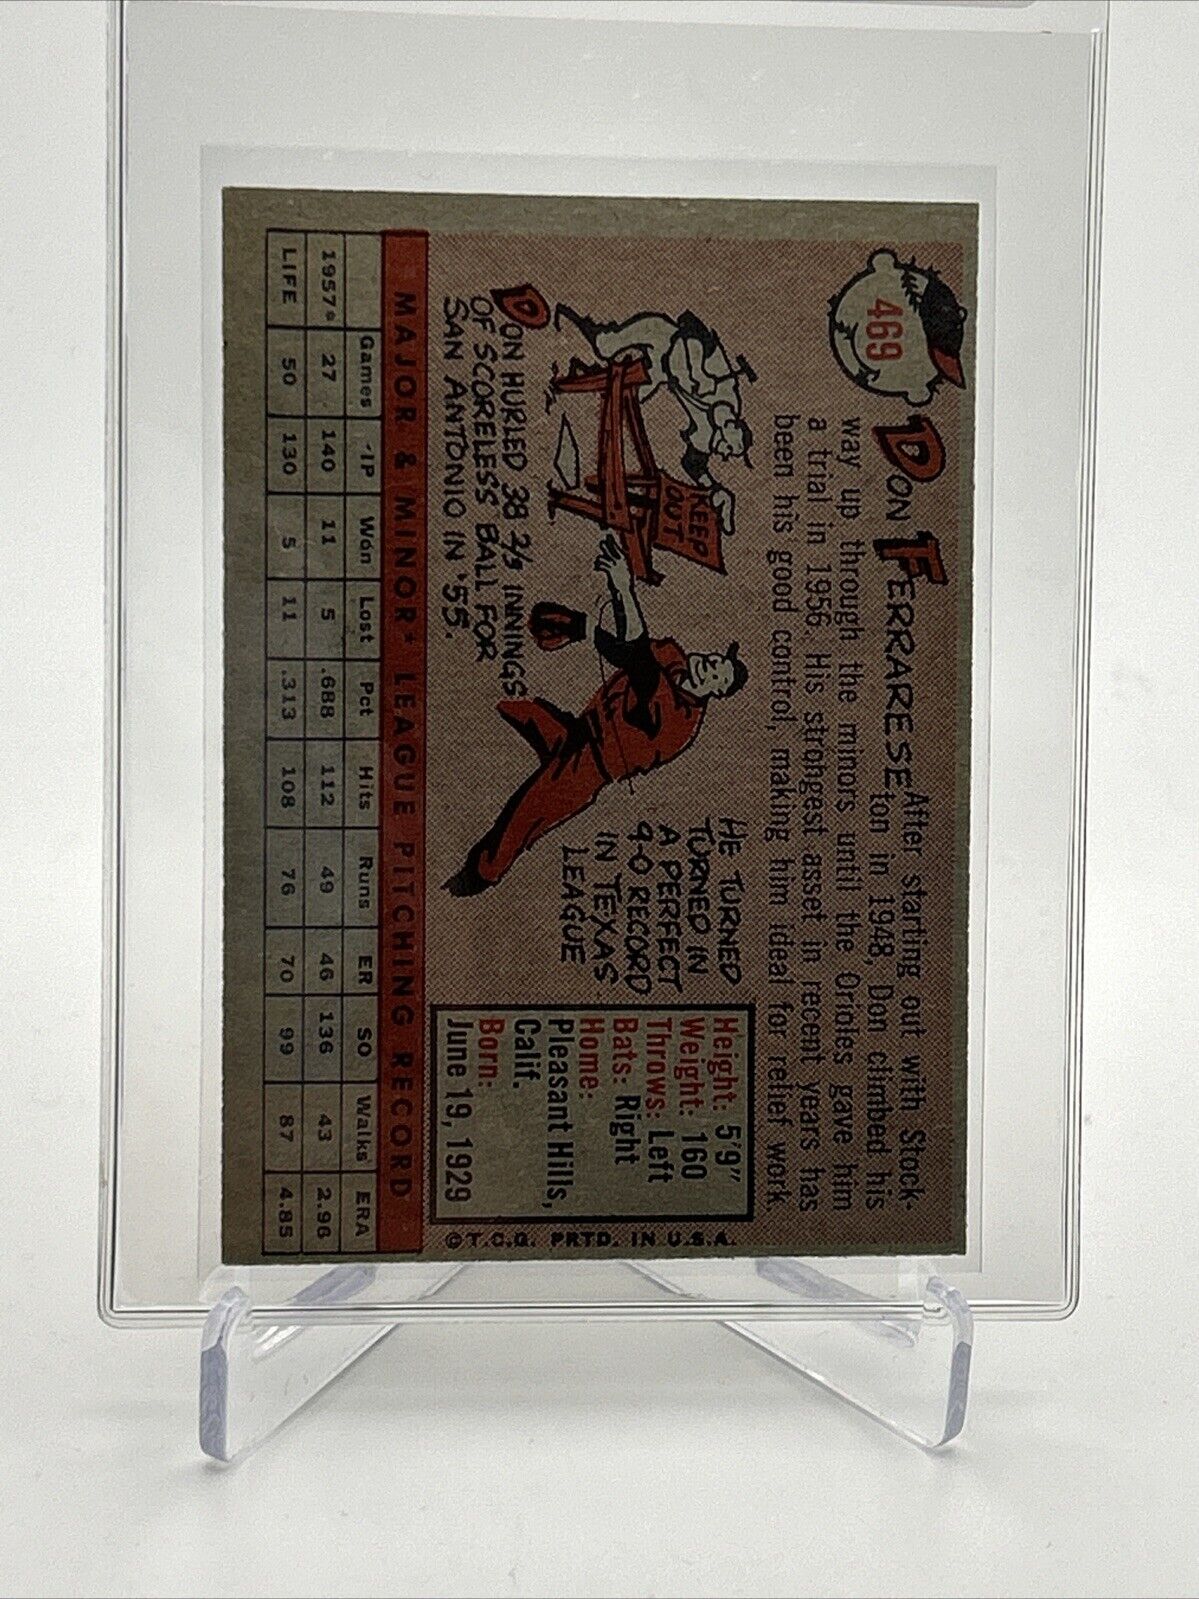 469
DON FERRARESE
After starting out with Stock-
ton in 1948, Don climbed his
way up through the minors until the Orioles gave him
a trial in 1956. His strongest asset in recent years has
been his good control, making him ideal for relief work.
KEEP
OUT
DON HURLED 38 2/3 INNINGS
OF SCORELESS BALL FOR
SAN ANTONIO IN '55.
HE TURNED
TURNED IN
A PERFECT
9-0 RECORD
IN TEXAS
LEAGUE
Height: 5'9"
Weight: 160
Throws: Left
Bats: Right
Home:
Pleasant Hills,
Calif.
Born:
June 19, 1929
©T.C.G. PRTD. IN U.S.A.
MAJOR & MINOR* LEAGUE PITCHING RECORD
Games -IP Won Lost Pct Hits Runs ER SO Walks ERA
1957* 27 140 11 5 .688 112 49 46 136 43 2.96
LIFE 50 130 5 11 .313 108 76 70 99 87 4.85